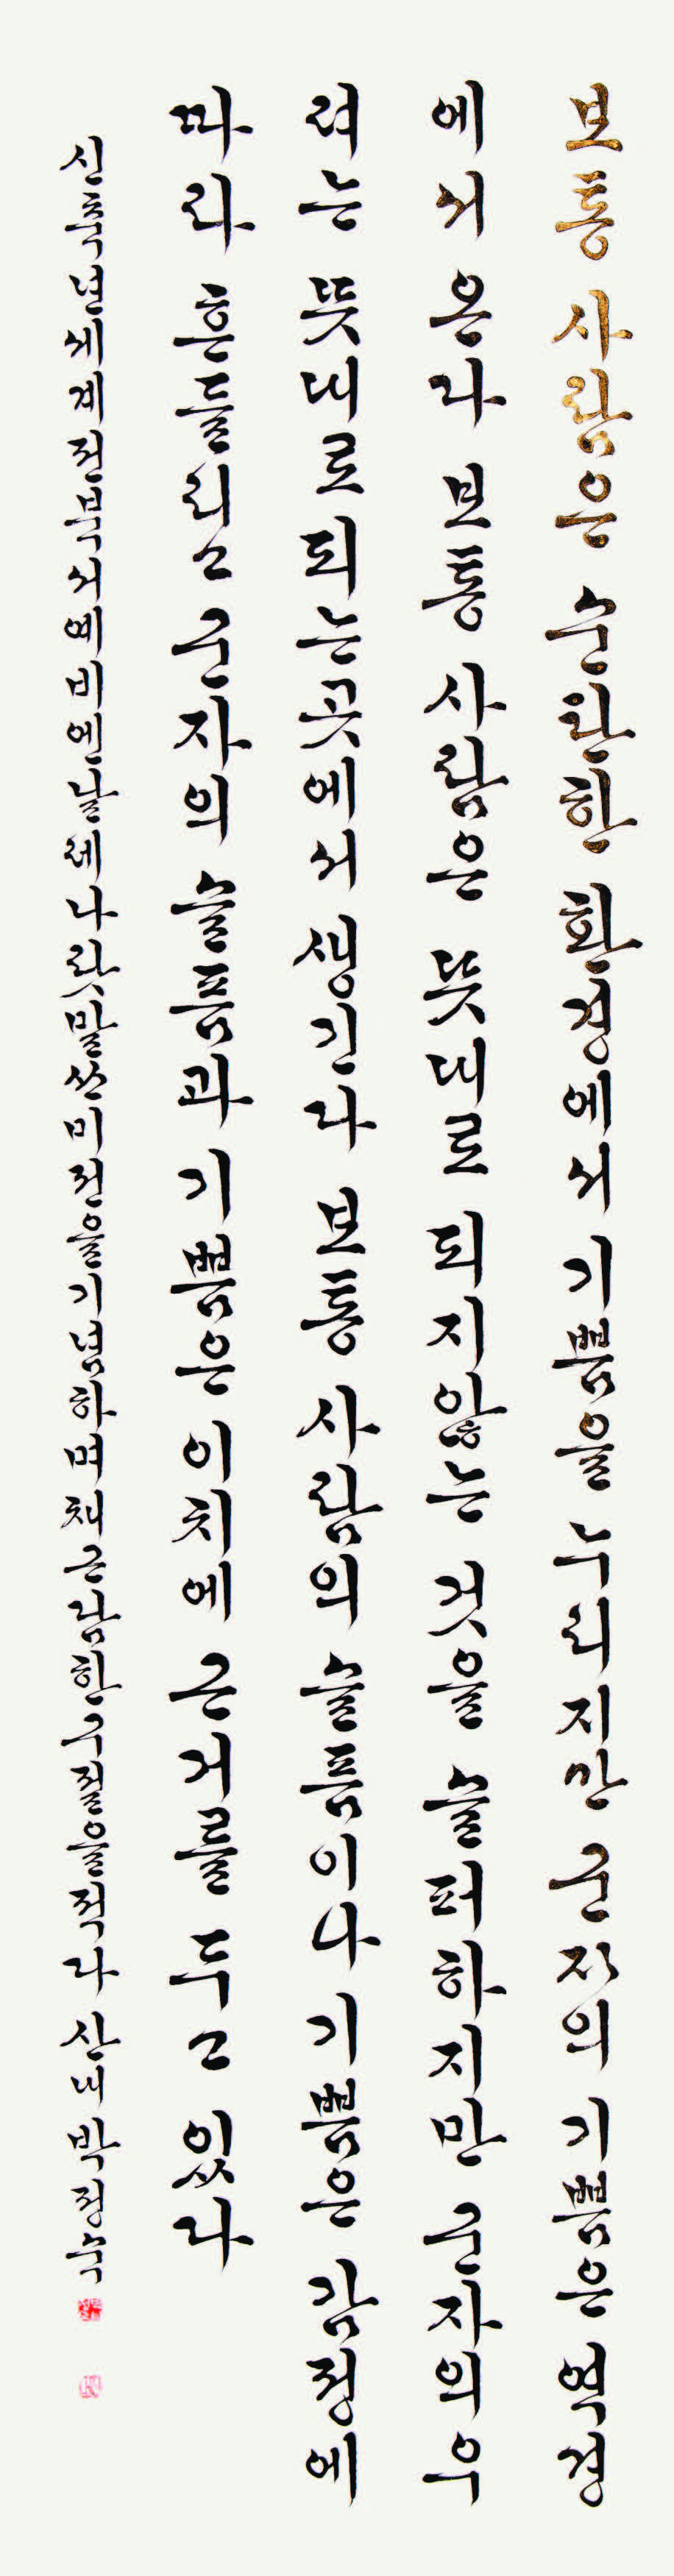 보통 사람은 순탄한 환경에서 기쁨을 누리지만 군자의 기쁨은 역경
에서 온다 보통 사람은 뜻대로 되지않는 것을 슬퍼하지만 군자의 우
려는 뜻대로되는곳에서 생긴다 보통 사람의 슬픔이나 기쁨은 감정에
따라 흔들리고 군자의 슬픔과 기쁨은 이치에 근거를 두고 있다
신축년세계전북서예비엔날레나랏말쓰미전을기념하며채근담한구절을적다 산내박정숙